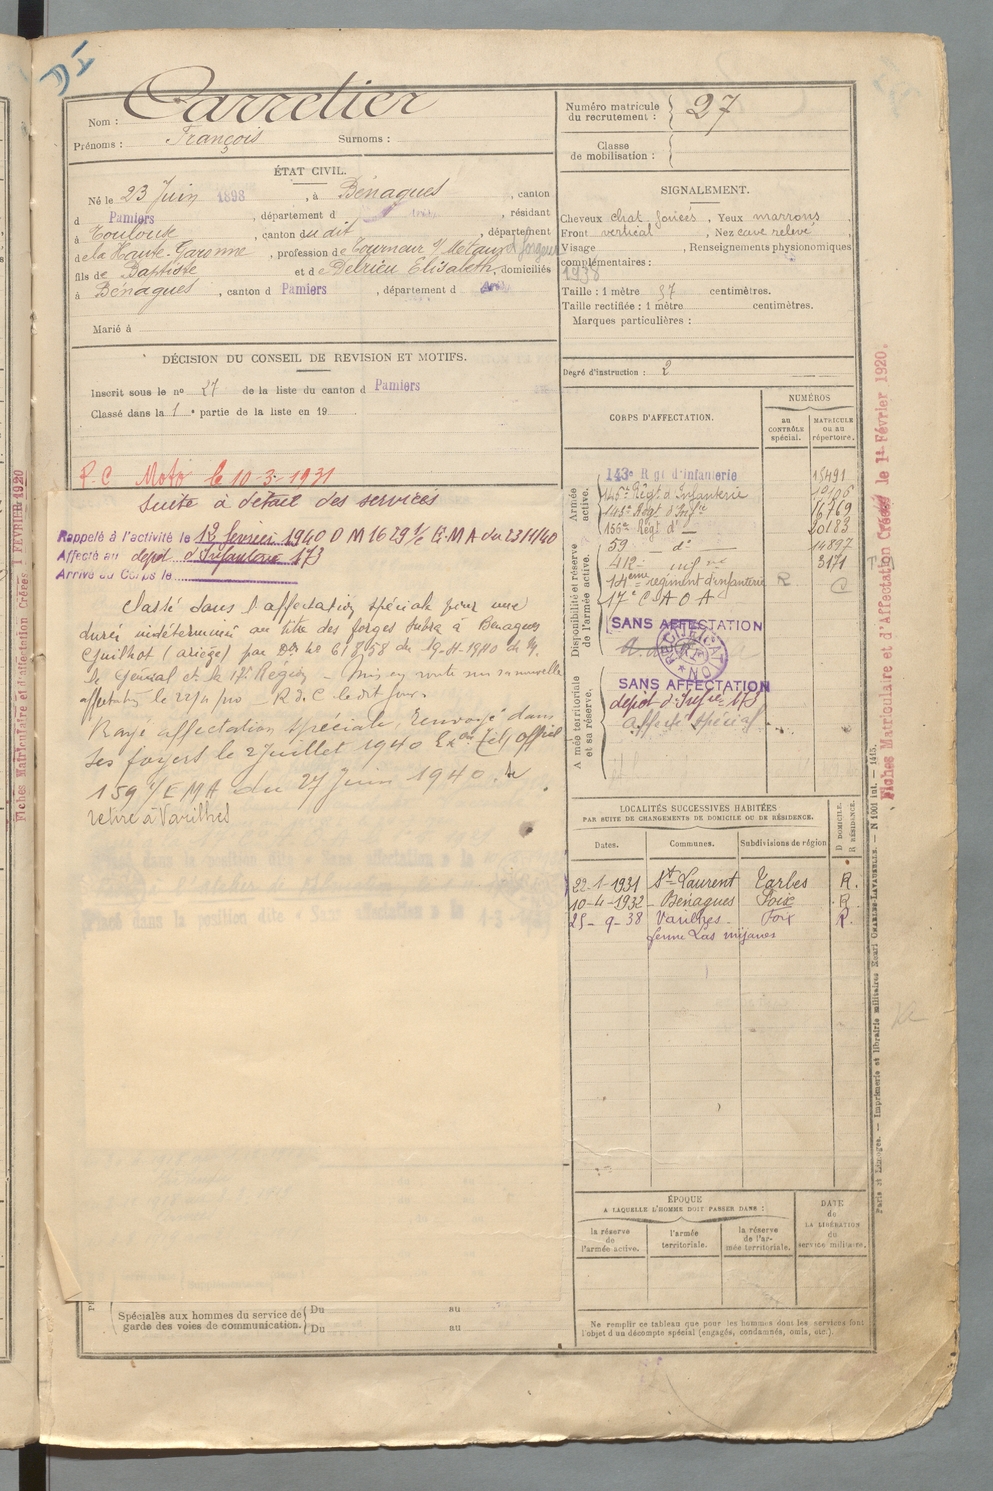 Nom : Carretier
Prénoms : François Surnoms :
ÉTAT CIVIL.
Né le 23 Juin 1898, à Bénagues, canton
d Pamiers, département d, résidant
à Toulouse, canton du dit, département
de la Haute-Garonne, profession de Tourneur s/ Métaux
fils de Baptiste et de Delrieu Elisabeth, domiciliés
à Bénagues, canton d Pamiers, département d
Marié à
DÉCISION DU CONSEIL DE REVISION ET MOTIFS.
Inscrit sous le no 27 de la liste du canton d Pamiers
Classé dans la 1e partie de la liste en 19
P.C Moto le 10-3-1931
Suite à détail des services
Rappelé à l'activité le 12 février 1940 D M 1629 1/ E.M.A du 23/1/40
Affecté au depot d'Infanterie 173
Arrivé au Corps le
Classé dans l'affectation spéciale pour une
durée indéterminé au titre des forges Subra à Bénagues
Guilhot (ariège) par
le Général Ct la 17e Région – mis en route sur sa nouvelle
affectation le
Rayé affectation spéciale, Renvoyé dans
ses foyers le 2 Juillet 1940 Officiel
159 1/EMA du 27 Juin 1940. Se
retire à Varilhes
Spéciales aux hommes du service de garde des voies de communication. Du au
Du au
Numéro matricule du recrutement : 27
Classe de mobilisation :
SIGNALEMENT.
Cheveux chat. foncés, Yeux marrons
Front vertical, Nez cave relevé
Visage, Renseignements physionomiques
complémentaires :
1938
Taille : 1 mètre 57 centimètres.
Taille rectifiée : 1 mètre centimètres.
Marques particulières :
Degré d'instruction : 2
CORPS D'AFFECTATION.
NUMÉROS
au CONTRÔLE spécial.
MATRICULE ou au répertoire.
Armée active.
143e Rgt d'infanterie 15491
Régt d'Infanterie
143e Régt d'Infie 16769
156e Régt d° 20183
Disponibilité et réserve de l'armée active.
59 d° 14897
412 3171
14ème régiment d'infanterie R C
17e C O A
SANS AFFECTATION
SANS AFFECTATION
Armée territoriale et sa réserve.
dépôt d'Infrie 173
affecté spécial
LOCALITÉS SUCCESSIVES HABITÉES
PAR SUITE DE CHANGEMENTS DE DOMICILE OU DE RÉSIDENCE.
Dates. Communes. Subdivisions de région D DOMICILE. R RÉSIDENCE.
22-1-1931 St Laurent Tarbes R.
10-4-1932 Bénagues Foix R
25-9-38 Varilhes Foix R.
ferme Las mijanes
ÉPOQUE
A LAQUELLE L'HOMME DOIT PASSER DANS :
la réserve de l'armée active.
l'armée territoriale.
la réserve de l'armée territoriale.
DATE de LA LIBÉRATION du service militaire.
Ne remplir ce tableau que pour les hommes dont les services font
l'objet d'un décompte spécial (engagés, condamnés, omis, etc.).
Fiches Matriculaire et d'Affectation Créées le 1er Février 1920.
Paris et Limoges. — Imprimerie et librairie militaires Henri CHARLES-LAVAUZELLE. — N 1001 int. — 1415.
Fiches Matriculaire et d'affectation Créées 1 FÉVRIER 1920